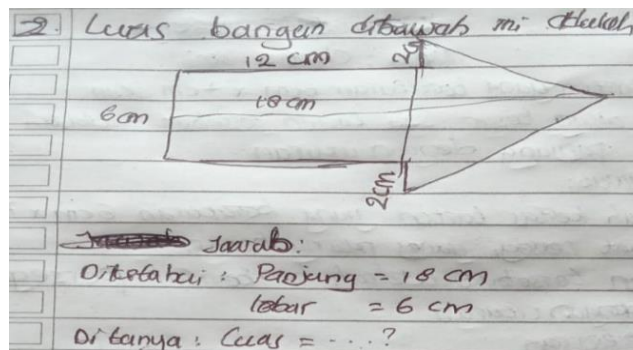 2. Luas bangun dibawah ini adalah
12 cm
2c
18 cm
6cm
2cm
Jawab:
Diketahui : Panjang = 18 cm
lebar = 6 cm
Ditanya : Luas = ....?